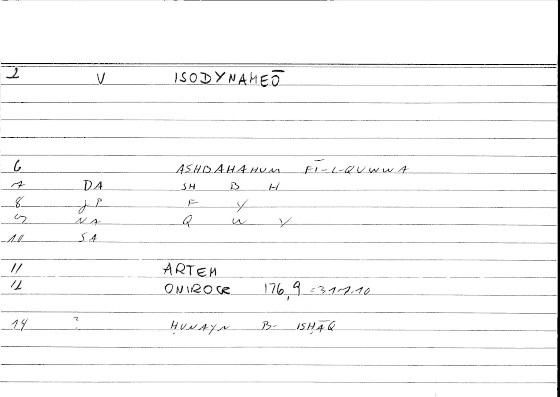 2 V ISODYNAMEŌ
6 ASHDAHAHUM FĪ-L-QUWWA
7 DA SH B H
8 JP F Y
9 NA Q W Y
10 SA
11 ARTEM
12 ONIROCR 176,9 = 31-1.10
14 ? ḤUNAYN B- ISḤĀQ